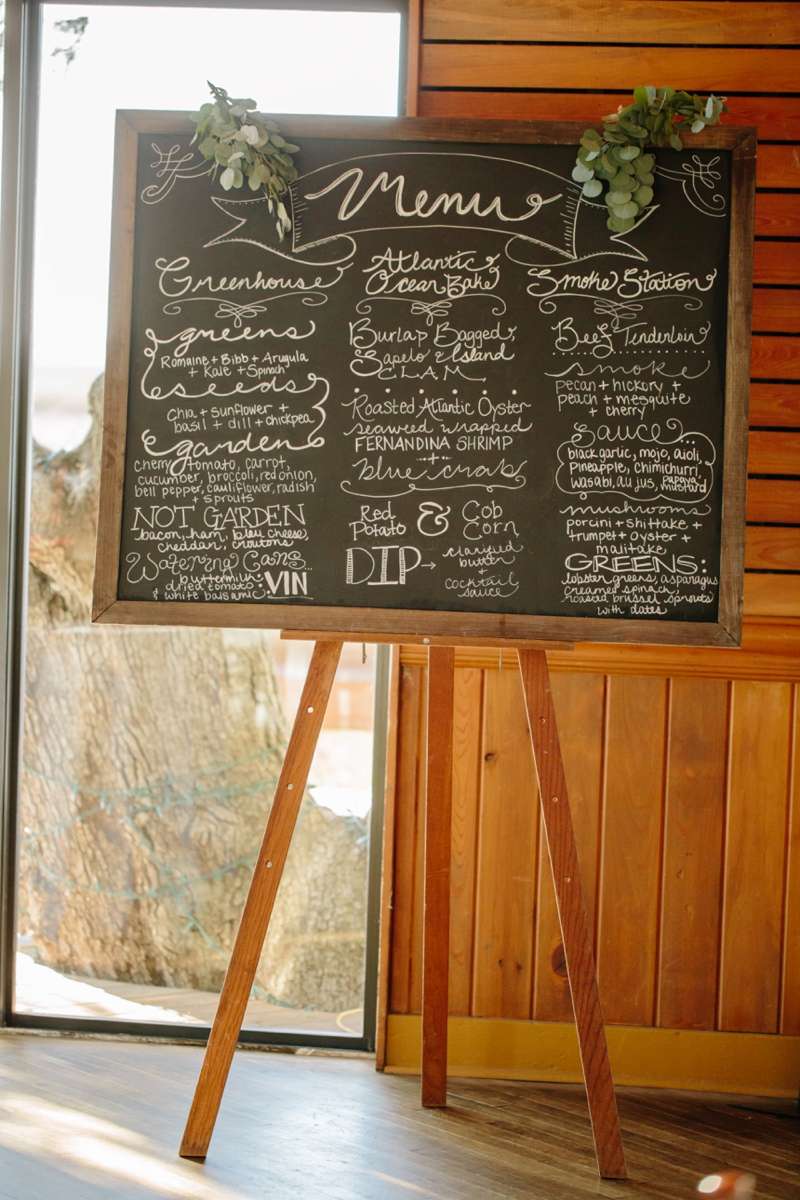 Menu
Greenhouse
greens
Romaine + Bibb + Arugula
+ Kale + Spinach
seeds
Chia + sunflower +
basil + dill + chickpea
garden
cherry tomato, carrot,
cucumber, broccoli, red onion,
bell pepper, cauliflower, radish
+ sprouts
NOT GARDEN
bacon, ham, bleu cheese,
cheddar, croutons
Watering Cans...
buttermilk
dried tomato
& white balsamic : VIN
Atlantic
Ocean Bake
Burlap Bagged,
Sapelo Island
CLAM
Roasted Atlantic Oyster
seaweed wrapped
FERNANDINA SHRIMP
+
blue crab
Red Potato & Cob Corn
DIP → clarified
butter
+
cocktail
sauce
Smoke Station
Beef Tenderloin
smoke
pecan + hickory +
peach + mesquite
+ cherry
Sauce
black garlic, mojo, aioli,
Pineapple, Chimichurri,
wasabi, au jus, papaya mustard
mushrooms
porcini + shittake +
trumpet + oyster +
maiitake
GREENS:
lobster greens, asparagus
creamed spinach,
roasted brussel sprouts
with dates